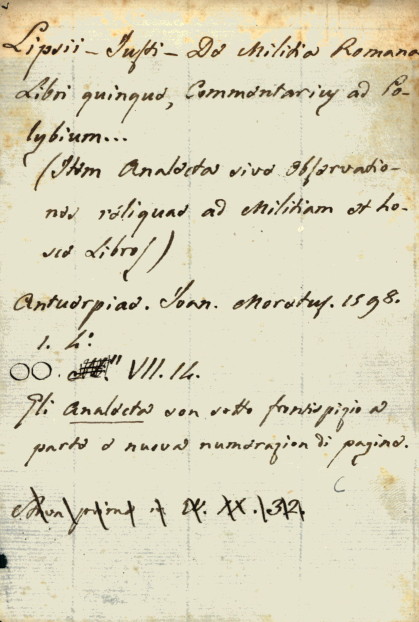 Lipsii - Justi - De Militia Romana
Libri quinque, Commentarius ad Po-
lybium...
(Item Analecta sive Observatio-
nes reliquae ad Militiam et ho-
sce Libros)
Antuerpiae. Joan. Moretus. 1598.
1. 4.°
OO. VII. 14.
Gli Analecta son sotto frontispizio a
parte e nuova numerazion di pagine.
XX. 32.